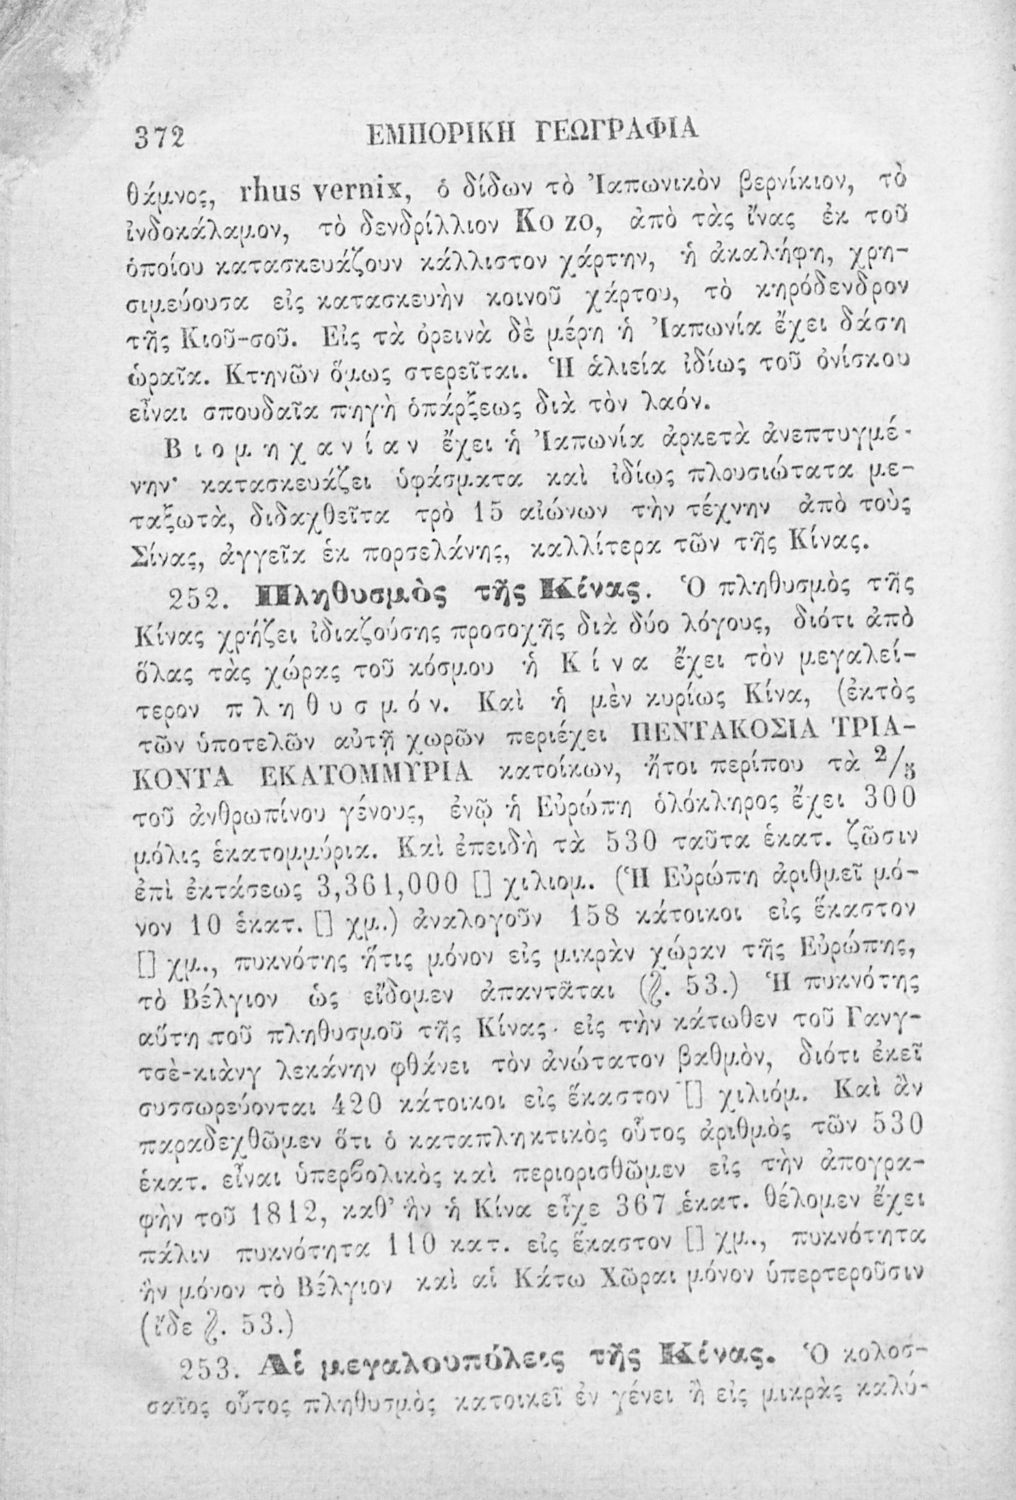 372 ΕΜΠΟΡΙΚΗ ΓΕΩΓΡΑΦΙΑ
θάμνος, rhus vernix, ὁ δίδων τὸ Ἰαπωνικὸν βερνίκιον, τὸ
ἰνδοκάλαμον, τὸ δενδρίλλιον Ko zo, ἀπὸ τὰς ἴνας ἐκ τοῦ
ὁποίου κατασκευάζουν κάλλιστον χάρτην, ἡ ἀκαλήφη, χρη-
σιμεύουσα εἰς κατασκευὴν κοινοῦ χάρτου, τὸ κηρόδενδρον
τῆς Κιοῦ-σοῦ. Εἰς τὰ ὀρεινὰ δὲ μέρη ἡ Ἰαπωνία ἔχει δάση
ὡραῖα. Κτηνῶν ὅμως στερεῖται. Ἡ ἁλιεία ἰδίως τοῦ ὀνίσκου
εἶναι σπουδαῖα πηγὴ ὑπάρξεως διὰ τὸν λαόν.
Βιομηχανίαν ἔχει ἡ Ἰαπωνία ἀρκετὰ ἀνεπτυγμέ-
νην· κατασκευάζει ὑφάσματα καὶ ἰδίως πλουσιώτατα με-
ταξωτὰ, διδαχθεῖτα τρὸ 15 αἰώνων τὴν τέχνην ἀπὸ τοὺς
Σίνας, ἀγγεῖα ἐκ πορσελάνης, καλλίτερα τῶν τῆς Κίνας.
252. Πληθυσμὸς τῆς Κίνας. Ὁ πληθυσμὸς τῆς
Κίνας χρήζει ἰδιαζούσης προσοχῆς διὰ δύο λόγους, διότι ἀπὸ
ὅλας τὰς χώρας τοῦ κόσμου ἡ Κίνα ἔχει τὸν μεγαλεί-
τερον πληθυσμόν. Καὶ ἡ μὲν κυρίως Κίνα, (ἐκτὸς
τῶν ὑποτελῶν αὐτῇ χωρῶν περιέχει ΠΕΝΤΑΚΟΣΙΑ ΤΡΙΑ-
ΚΟΝΤΑ ΕΚΑΤΟΜΜΥΡΙΑ κατοίκων, ἤτοι περίπου τὰ 2/5
τοῦ ἀνθρωπίνου γένους, ἐνῷ ἡ Εὐρώπη ὁλόκληρος ἔχει 300
μόλις ἑκατομμύρια. Καὶ ἐπειδὴ τὰ 530 ταῦτα ἑκατ. ζῶσιν
ἐπὶ ἐκτάσεως 3,361,000 [] χιλιομ. (Ἡ Εὐρώπη ἀριθμεῖ μό-
νον 10 ἑκατ. [] χμ.) ἀναλογοῦν 158 κάτοικοι εἰς ἕκαστον
[] χμ., πυκνότης ἥτις μόνον εἰς μικρὰν χώραν τῆς Εὐρώπης,
τὸ Βέλγιον ὡς εἴδομεν ἀπαντᾶται (§. 53.) Ἡ πυκνότης
αὕτη τοῦ πληθυσμοῦ τῆς Κίνας εἰς τὴν κάτωθεν τοῦ Γανγ-
τσὲ-κιὰνγ λεκάνην φθάνει τὸν ἀνώτατον βαθμὸν, διότι ἐκεῖ
συσσωρεύονται 420 κάτοικοι εἰς ἕκαστον [] χιλιόμ. Καὶ ἂν
παραδεχθῶμεν ὅτι ὁ καταπληκτικὸς οὗτος ἀριθμὸς τῶν 530
ἑκατ. εἶναι ὑπερβολικὸς καὶ περιορισθῶμεν εἰς τὴν ἀπογρα-
φὴν τοῦ 1812, καθ' ἣν ἡ Κίνα εἶχε 367 ἑκατ. θέλομεν ἔχει
πάλιν πυκνότητα 110 κατ. εἰς ἕκαστον [] χμ., πυκνότητα
ἣν μόνον τὸ Βέλγιον καὶ αἱ Κάτω Χῶραι μόνον ὑπερτεροῦσιν
(ἴδε §. 53.)
253. Αἱ μεγαλουπόλεις τῆς Κίνας. Ὁ κολοσ-
σαῖος οὗτος πληθυσμὸς κατοικεῖ ἐν γένει ἢ εἰς μικρὰς καλύ-